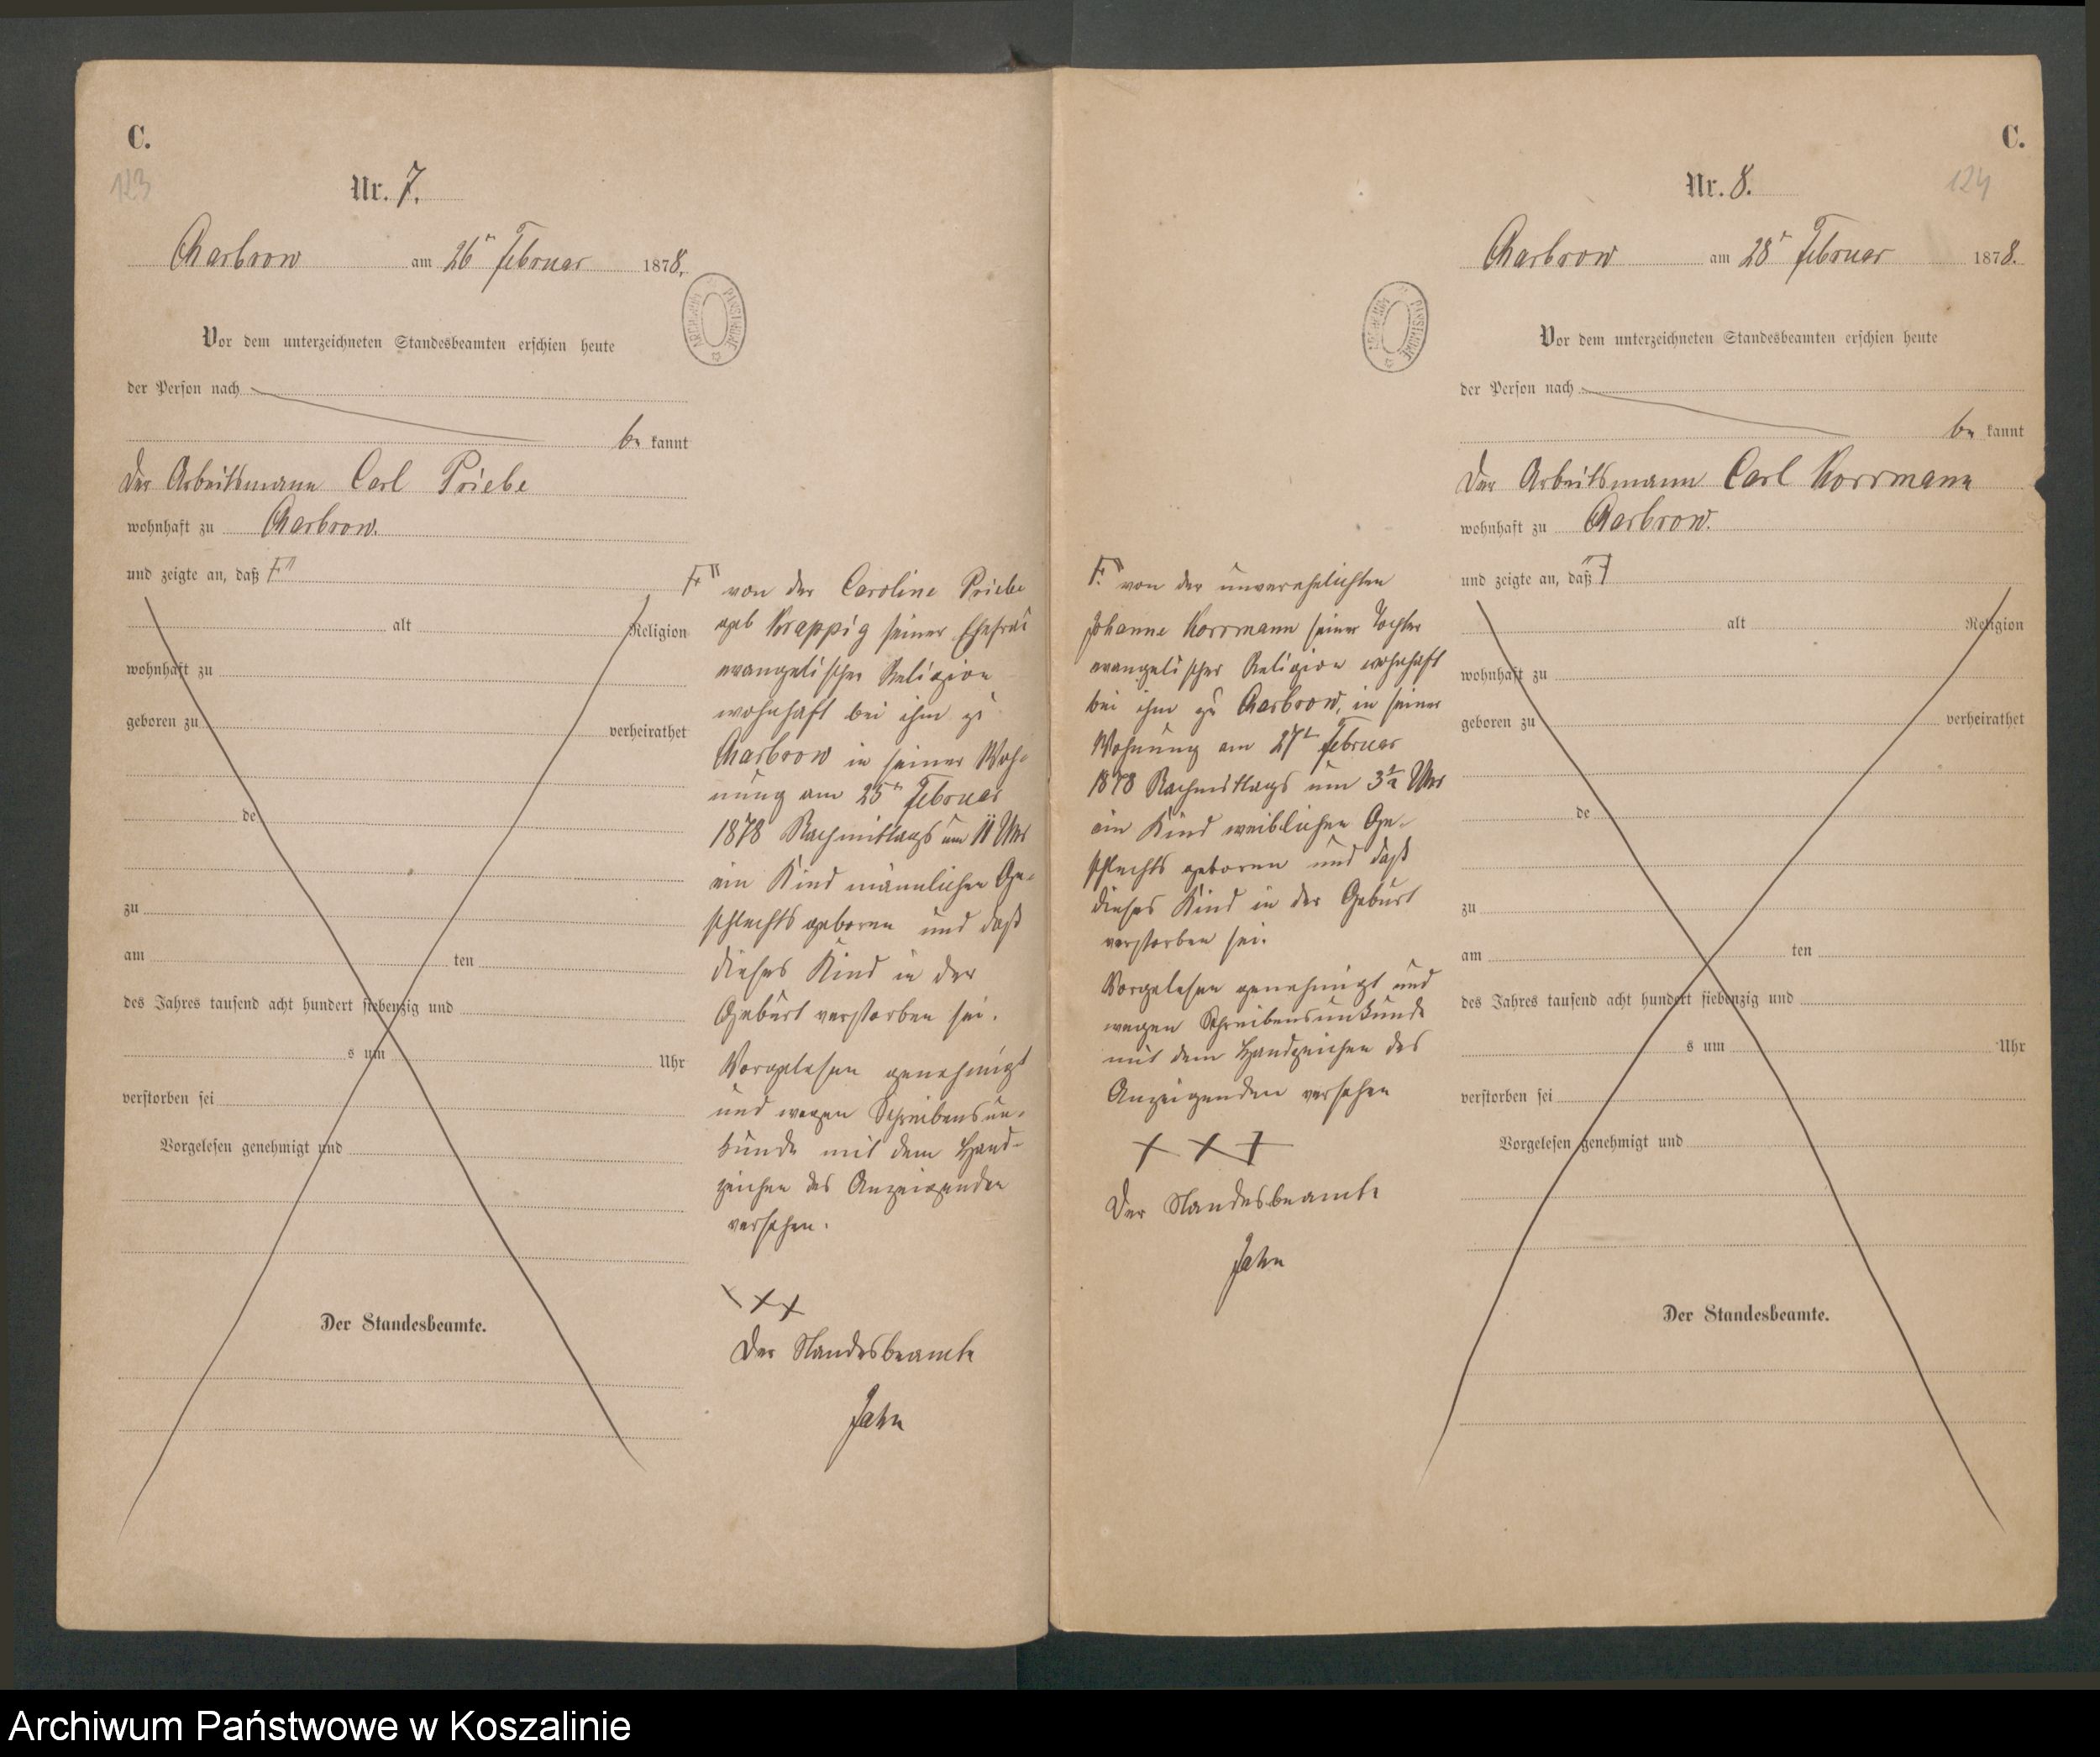 C.
123
Nr. 7.
Charbrow am 26n Februar 1878.
ARCHIWUM PAŃSTWOWE
Vor dem unterzeichneten Standesbeamten erschien heute
der Person nach
be kannt
der Arbeitsmann Carl Priebe
wohnhaft zu Charbrow.
und zeigte an, daß F"
alt Religion
wohnhaft zu
geboren zu
verheirathet
de
zu
am ten
des Jahres tausend acht hundert siebenzig und
s um Uhr
verstorben sei
Vorgelesen genehmigt und
Der Standesbeamte.
F" von der Caroline Priebe
geb Krappig seiner Ehefrau
evangelischer Religion
wohnhaft bei ihm zu
Charbrow in seiner Woh-
nung am 25n Februar
1878 Nachmittags um 11 Uhr
ein Kind männlichen Ge-
schlechts geboren und daß
dieses Kind in der
Geburt verstorben sei.
Vorgelesen genehmigt
und wegen Schreibensun-
kunde mit dem Hand-
zeichen des Anzeigenden
versehen.
XXX
Der Standesbeamte
Jahn
C.
124
Nr. 8.
Charbrow am 28n Februar 1878.
ARCHIWUM PAŃSTWOWE
Vor dem unterzeichneten Standesbeamten erschien heute
der Person nach
be kannt
Der Arbeitsmann Carl Korrmann
wohnhaft zu Charbrow.
und zeigte an, daß "F
alt Religion
wohnhaft zu
geboren zu verheirathet
de
zu
am ten
des Jahres tausend acht hundert siebenzig und
s um Uhr
verstorben sei
Vorgelesen genehmigt und
Der Standesbeamte.
F." von der unverehelichten
Johanne Korrmann seiner Tochter
evangelischer Religion wohnhaft
bei ihm zu Charbrow, in seiner
Wohnung am 27n Februar
1878 Nachmittags um 3½ Uhr
ein Kind weiblichen Ge-
schlechts geboren und daß
dieses Kind in der Geburt
verstorben sei.
Vorgelesen genehmigt und
wegen Schreibensunkunde
mit dem Handzeichen des
Anzeigenden versehen
XXX
Der Standesbeamte
Jahn
Archiwum Państwowe w Koszalinie